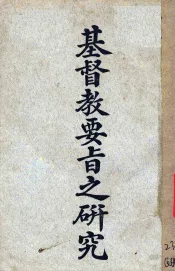 基督教要旨之研究